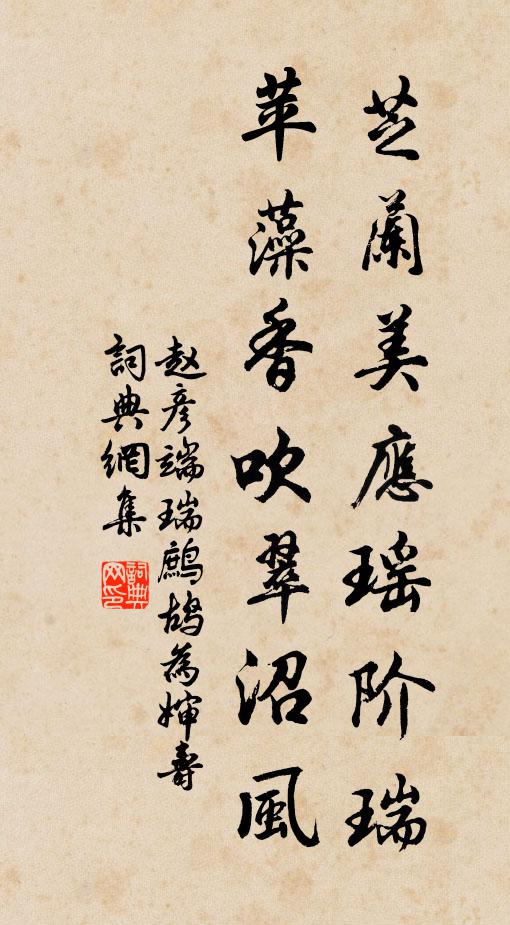 芝蘭美應瑶阶瑞
苹藻香吹翠沼風
赵彦端瑞鷓鴣為婶壽
詞典網集
詞典
网印